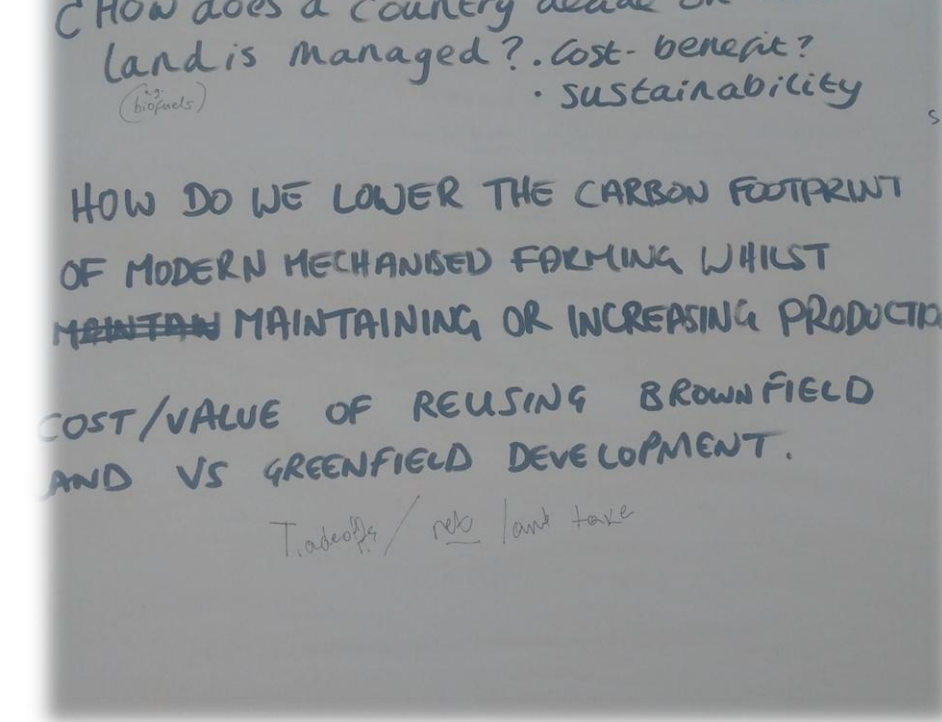 How does a country decide on
land is managed? . cost-benefit?
(eg. biofuels)
• sustainability
HOW DO WE LOWER THE CARBON FOOTPRINT
OF MODERN MECHANISED FARMING WHILST
MAINTAINING OR INCREASING PRODUCTIO
COST/VALUE OF REUSING BROWNFIELD
AND VS GREENFIELD DEVELOPMENT.
Tradeoffs / land take